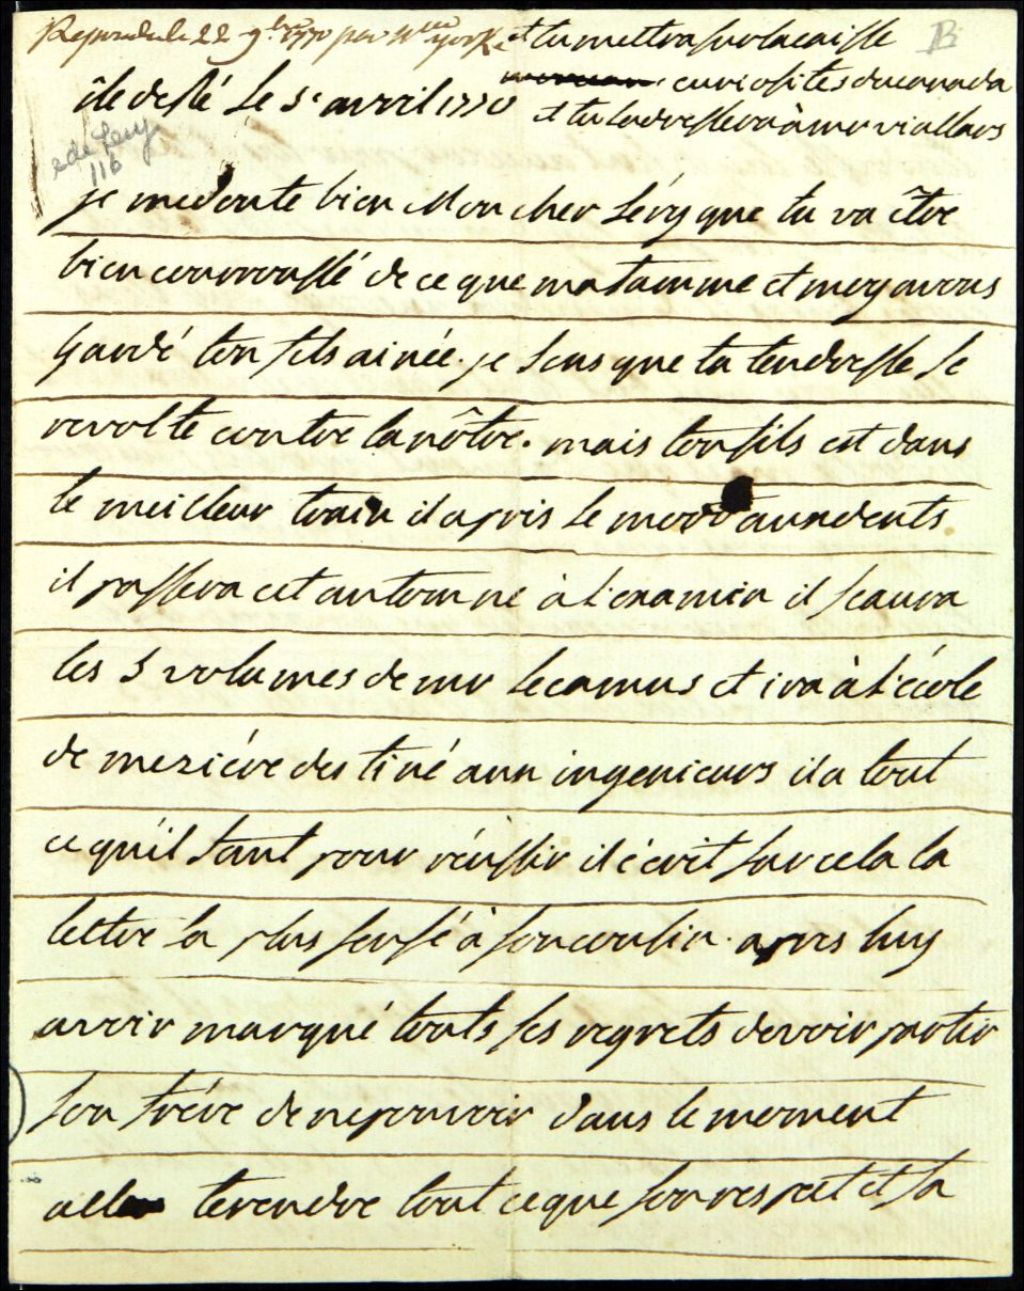 Repondu le 22 9bre 1770 par New york
et tu mettra sur la caisse
curiosites du canada
et tu l'adressera à mr viallars
B
île de Ré le 5e avril 1770
2de Levy
116
je me doute bien Mon cher Lévy que tu va être
bien courroussé de ce que ma famme et moy avons
gardé ton fils ainée. je sens que ta tendresse se
revolte contre la nôtre. mais ton fils est dans
le meilleur train il a pris le mord aux dents
il passera cet automne à l'examin il scaura
les 3 volumes de mr Lecamus et ira à l'école
de meziére destiné aux ingenieurs il a tout
ce qu'il faut pour réussir il écrit sur cela la
lettre la plus sensé à son cousin. apres luy
avoir marqué touts ses regrets de voir partir
son frére de ne pouvoir dans le moment
aller te rendre tout ce que son respect et sa